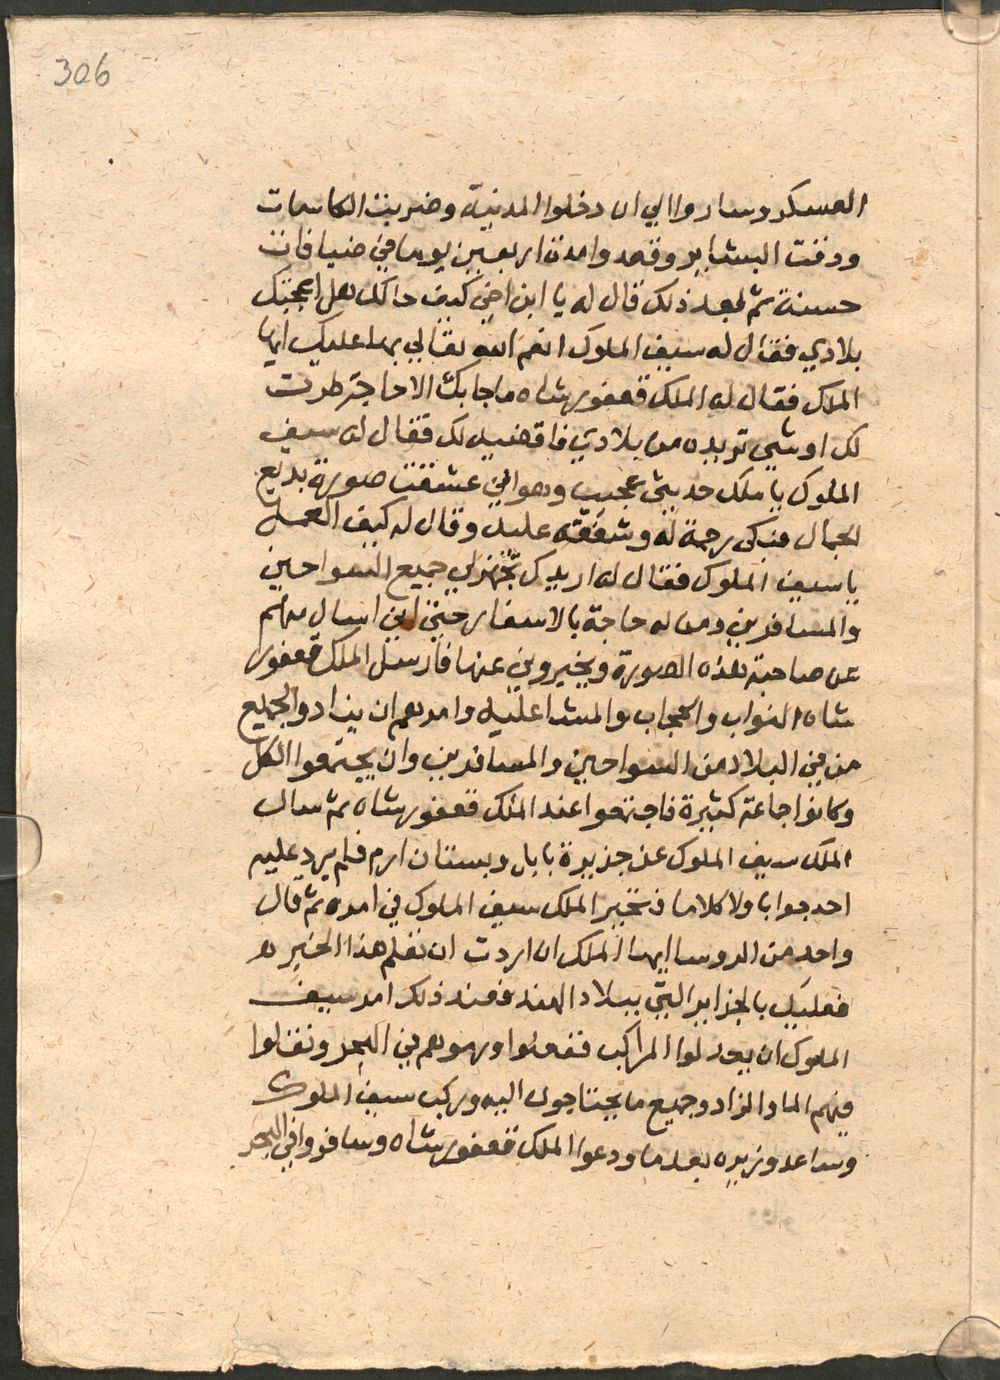 306
العسكر وساروا الي ان دخلوا المدينة وضربت الكاسات
ودقت البشاير وقعد وامدة اربعين يوما في ضيافات
حسنة ثم بعد ذلك قال له يا ابن اخي كيف حالك هل اعجبتك
بلادي فقال له سيف الملوك انعم الله تعالي بها عليك ايها
الملك فقال له الملك قعفور شاه ما جابك الا حاجة طرت
لك او شي تريده من بلادي فاقضيه لك فقال له سيف
الملوك يا ملك حديثي عجيب وهو اني عشقت صورة بديع
الجمال فبكى رحمة له وشفقة عليه وقال له كيف العمل
يا سيف الملوك فقال له اريدك تحضر لي جميع السواحين
والمسافرين ومن له حاجة بالاسفار حتي اني اسال منهم
عن صاحبة هذه الصورة ويخبروني عنها فارسل الملك قعفور
شاه النواب والحجاب والمشاعليه وامرهم ان ينادوا لجميع
من في البلاد من السواحين والمسافرين وان يجتمعوا الكل
وكانوا جماعة كثيرة فاجتمعوا عند الملك قعفور شاه ثم سال
الملك سيف الملوك عن جزيرة بابل وبستان ارم فلم يرد عليه
احد جوابا ولا كلاما فتحير الملك سيف الملوك في امره ثم قال
واحد من الروسا ايها الملك ان اردت ان تعلم هذا الخبر
فعليك بالجزاير التي ببلاد الهند فعند ذلك امر سيف
الملوك ان يحولوا المراكب ففعلوا ورموهم في البحر ونقلوا
فيهم الما والزاد وجميع ما يحتاجون اليه وركب سيف الملوك
وساعد وزيره بعد ما ودعوا الملك قعفور شاه وسافروا في البحر